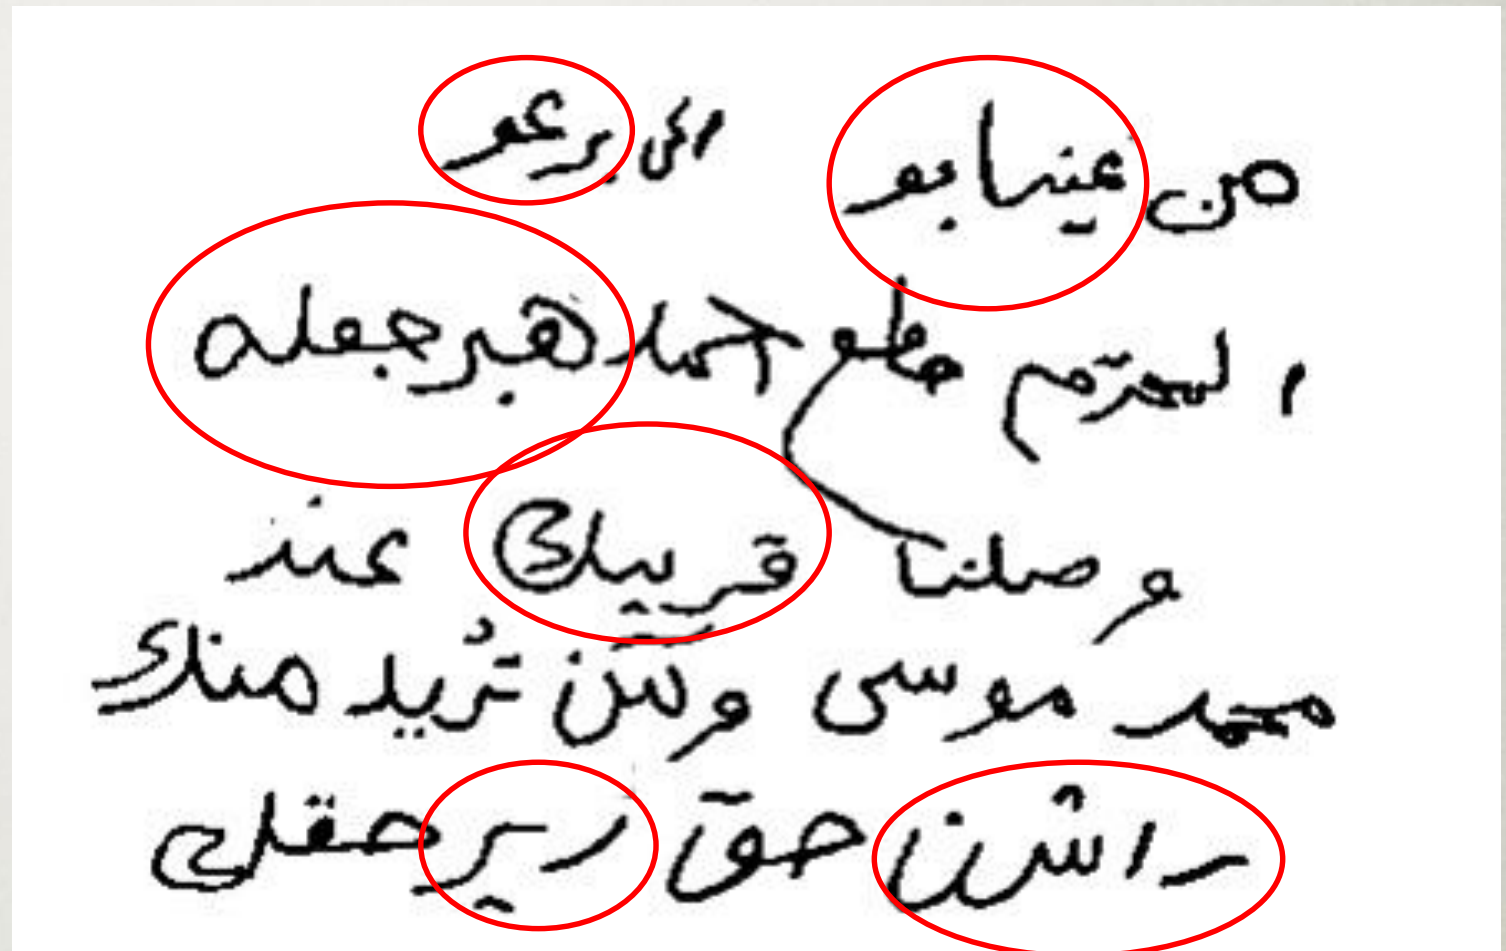 من عينابو الى برعو
المحترم حطو احمد هبر جعله
وصلنا قريبك عند
محمد موسى وتن تريد منك
راشن حق رير حقك